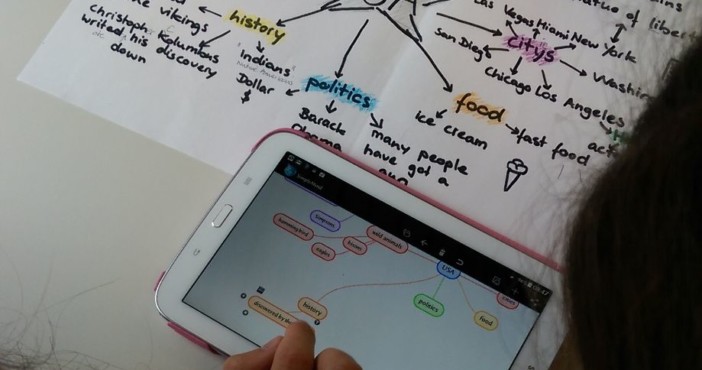 vikings
history
Christoph Kolumbus
writed his discovery
down
Indians
Native Americans
Dollar
$
politics
Barack
Obama
many people
have got a
gun
food
Ice cream
fast food
citys
Las Vegas
Miami
New York
San Diego
Chicago
Los Angeles
statue of liberty
wild animals
bison
eagles
USA
politics
food
history
discovered by